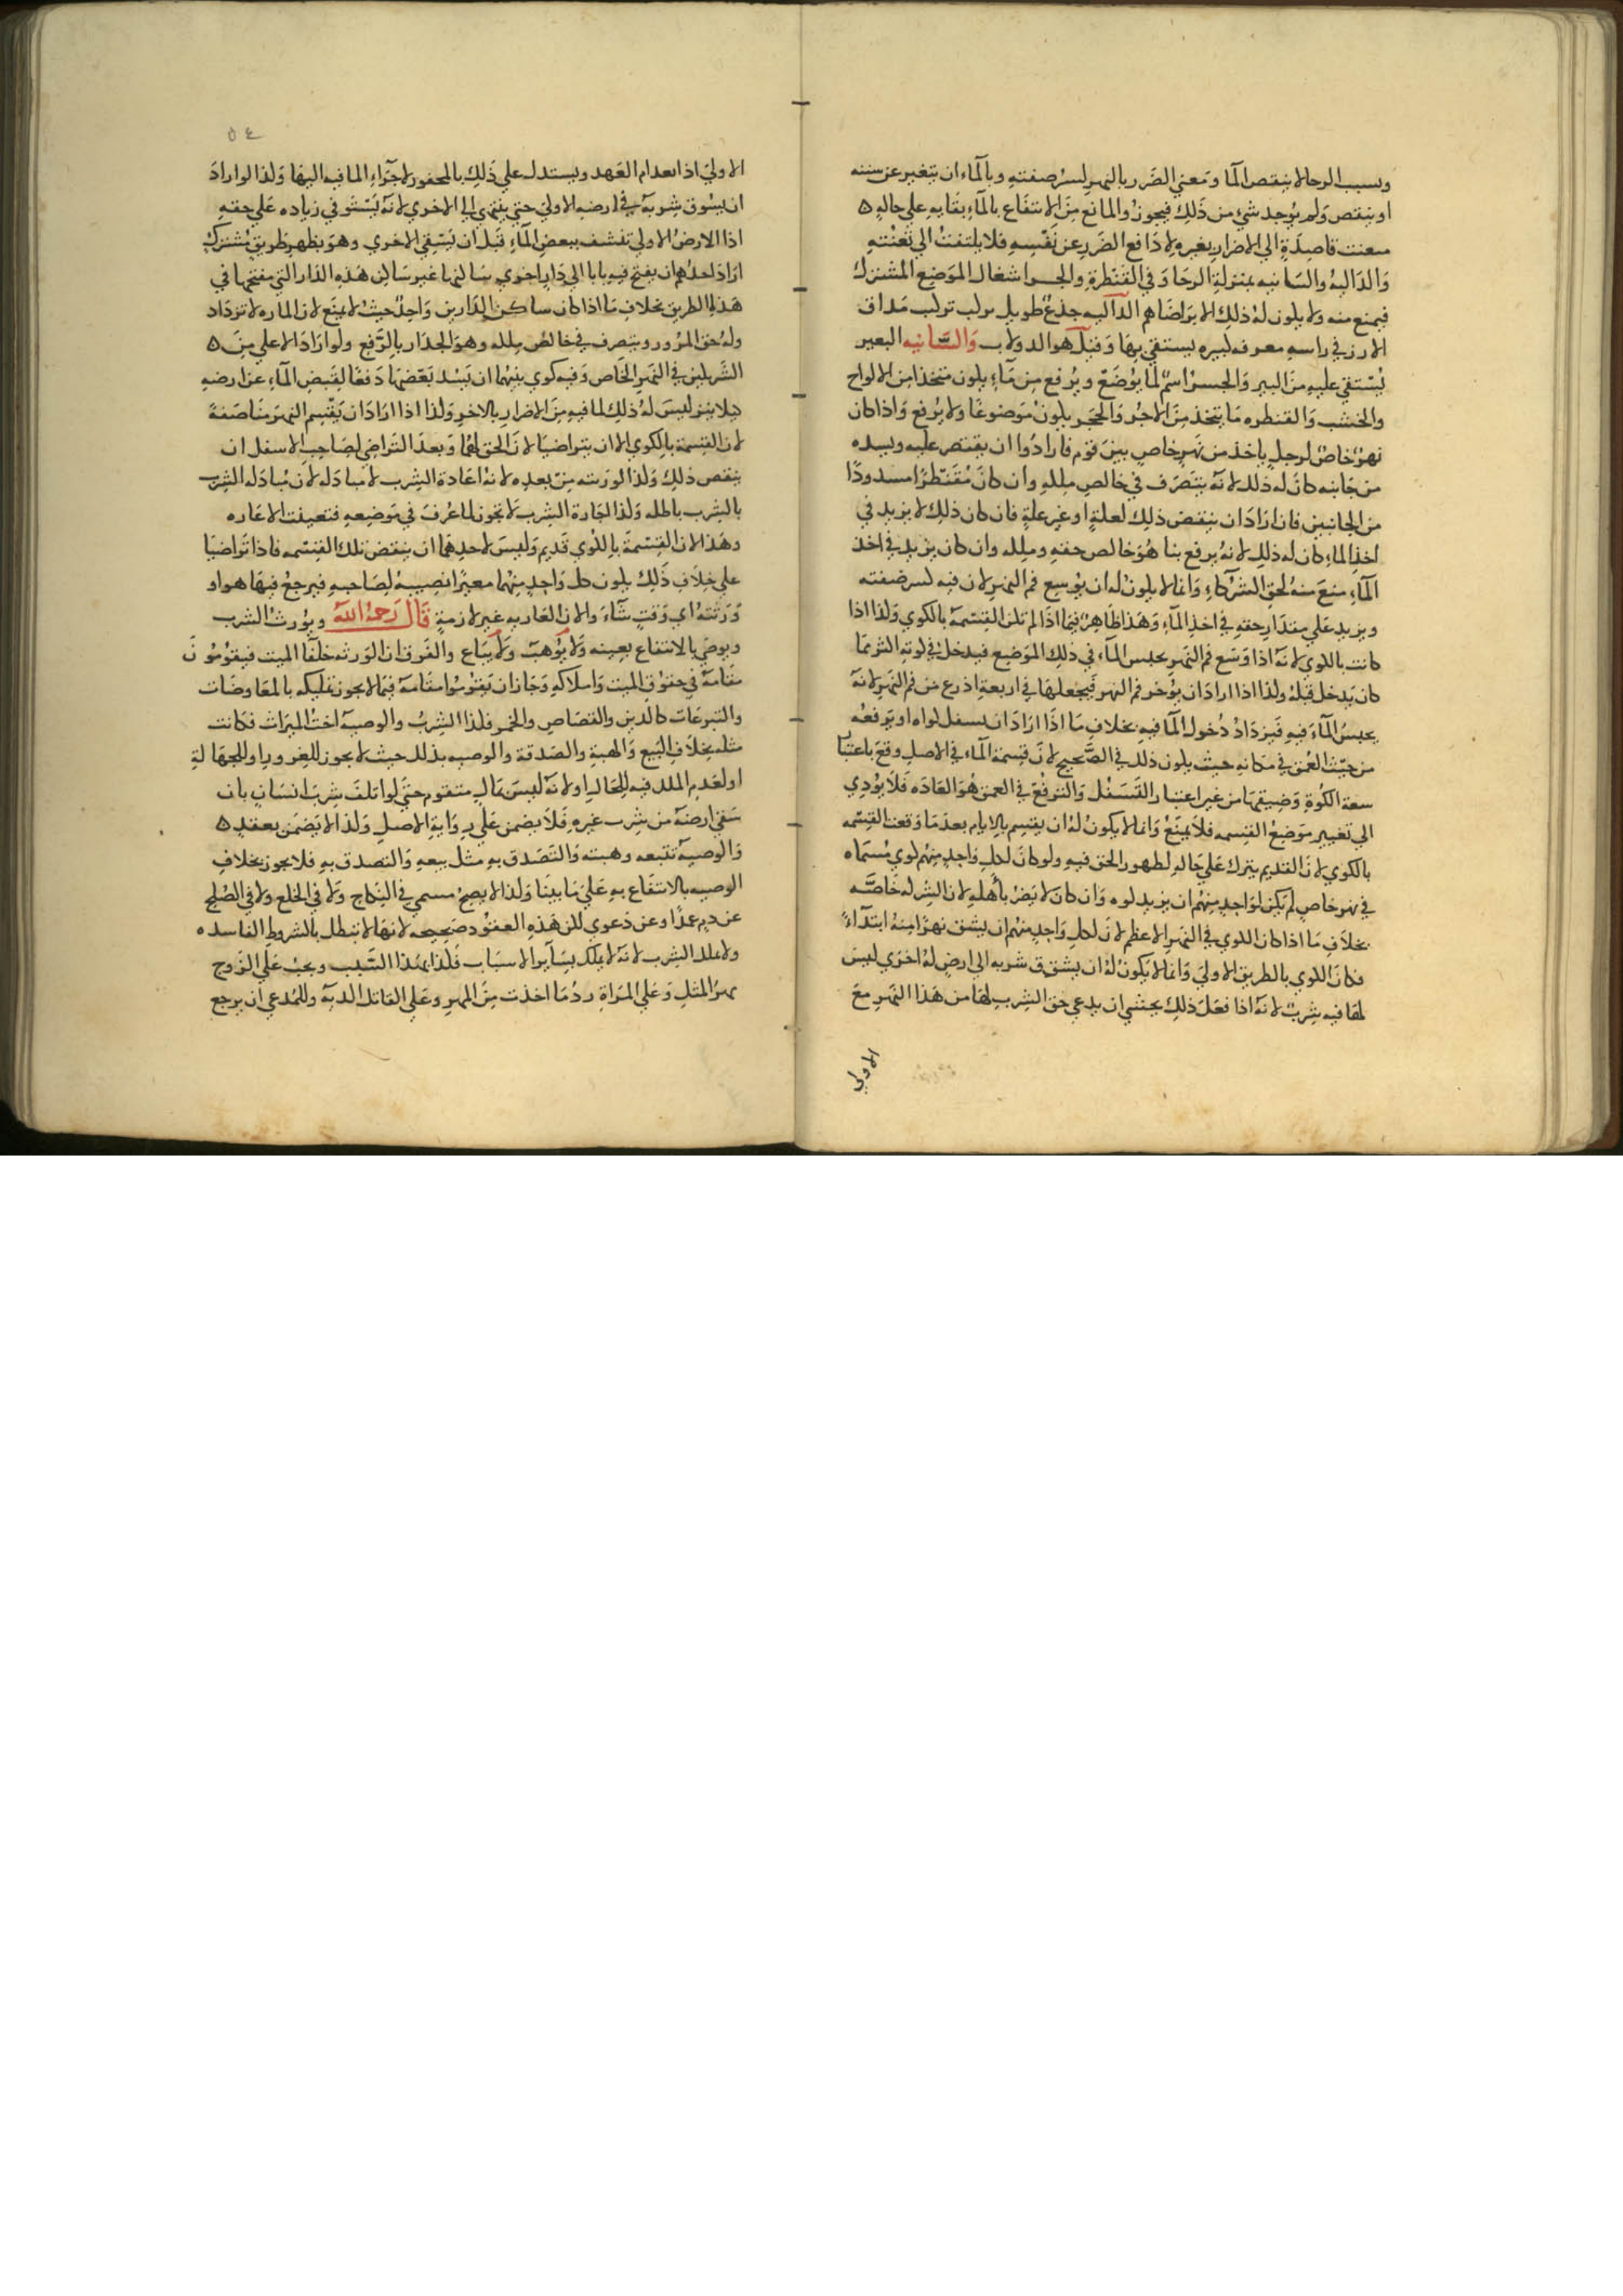 وبسبب الرحا لا ينقص المآ ومعني الضَرر بالنهر لسر صفتهِ وبالمآء ان يتغير عن سننه
او ينقص وَلم يُوجد شيٌ من ذَلِكَ فيجوزُ والمانع مِنَ الانتفَاع بالمآءِ بقايهِ علي حالهِ ه
متعنت قاصِدَةٍ الي الاضرار بغيره لا دَافع الضَررِ عن نَفسِهِ فلا يلتفتُ الي تَعنتهِ
وَالدَاليهُ والسَانيه بمنزلةِ الرحَا وَفي القَنطرةِ والجسر اشغال الموَضِع المشترك
فيمنع منه ولا يلون لهُ ذلك الا برَاضَاهم الدآليه جذعٌ طويل يركب تركيب مَداق
الارز في راسهِ معرفه لبيره يستقي بهَا وَقيلَ هو الدولاب وَالسَّانيه البعير
يُستقي عليهِ منَ البير وَالجسر اسمٌ لما يُوضَع ويُرفع مِن مَاءٍ يلون متخذا مِن الالواح
والخشب وَالقنطره مَا يتخذ مِنَ الاجُر وَالحَجَر يلونُ مَوضوعًا ولا يُرفع وَاذا كان
نهرٌ خاصٌ لرجلٍ يأخذ من نَهرٍ خاصٍ بينَ قوم فارادُوا ان يقنطر عليه ويسده
من جَانبه كانَ له ذلك لانهُ يتَصَرف في خالصِ ملكهِ وان كانَ مُقَنّطرًا مسدودًا
من الجانبين فان ارَادَ ان ينقض ذلِكَ لعلةٍ او غيرِ علةٍ فان كان ذلك لا يزيد في
اخذِ الماءِ كان له ذلِك لانهُ يُرفع بنا هُوَ خالص حقهِ وملكه وان كان يزيد في اخذ
المآءِ منعَ منهُ لحَقِ الشرَكاءِ وَانما لا يلونُ له ان يُوسع فم النهر لان فيه لسر ضفته
ويزيد عَلي مقدَار حقهِ في اخذِ المآءِ وَهَذا ظَاهِرٌ فيمَا اذَا لم تلن القِسّمة بالكوي وَلذا اذا
كانت باللوي لانهُ اذا وَسّع فم النَهر يحبس المآء في ذلك الموَضع فيدخل في كوتهِ اكثر مما
كان يَدخل قبلهُ ولذا اذا ارادَ ان يؤَخر فم النهر فيجعلها في اربعةِ اذرع من فم النهَر لانهُ
يحبسُ المآءَ فيهِ فيزدَادُ دُخول المآ فيهِ بخلاف مَا اذَا ارَادَ ان يسفل لواه او يرفعهُ
من حيثُ العُمق في مَكانهِ حيث يلون ذلك في الصَّحيح لانَ قِسمة المآءِ في الاصلِ وَقعَ باعتبا
سعةِ الكُوةِ وَضيقهَا من غير اعتبار التسَفُل وَالترفُع في العمق هوَ العَادَه فَلا يؤدي
الي تغيير موَضعُ القسمه فلا يمنَعُ وَانما لا يكونُ لهُ ان يقسم بالايام بعدَ مَا وَقعت القِسمه
بالكوي لانَ القديم يترك عَلي حَالهِ لظهور الحَق فيهِ ولو كانَ لكلِ وَاحدٍ مِنهُم لوي مُسَمَاه
في نهرٍ خاصٍ لم يكن لوَاحدٍ مِنهُم ان يزيد لوه وَان كان لا يَضرُ بأهلهِ لان الشركه خاصَّه
بخلاَفِ مَا اذا كان اللوي في النهرِ الاعظم لان لكلِ وَاحِدٍ منهُم ان يشق نهرًا منهُ ابتدآءً
فكانَ اللوي بالطريق الاولي وَانما لا يَكونُ لهُ ان يشقق شربه الي ارضٍ لهُ اخرَي ليسَ
لها فيهِ شِربٌ لانهُ اذا فعَلَ ذلك يخشي ان يدعي حَق الشرب لهَا من هَذا النهرِ معَ
الاولي
٥٤
الاوليَ اذا بعدام العَهد ويستدل علي ذَلكَ بالمحفور لاجرَاءِ الما فيه اليها وَلذا لو ارادَ
ان يسُوق شربهُ في ارضهِ الاولي حتي ينتهي الي الاخري لانه يَستوفي زياده عَلي حقهِ
اذا الارضُ الاولي تنشف ببعض المآءِ قَبلَ ان يَسقي الاخري وهوَ بظهرِ طريقٍ مُشتركٍ
ارَادَ احدُهُم ان يفتح فيهِ بابا الي دَارٍ اخري سَاكنها غير سَاكن هَذهِ الدَار التي مفتحها في
هَذا الطريق بخلافِ مَا اذا كان ساكن الدَارين وَاحدٌ حيثُ لا يمنَع لان الماره لا تزدَاد
ولهُ حَق المرُور ويتصرف في خالصُ ملكه وهوَ الجدَار بالرَفعِ ولو ارَادَ الاعلي منَ ه
الشَريكين في النهرِ الخاص وَفيهِ كوي بينهُما ان يَسُد بَعضهَا دَفعًا لفيض المآءِ عن ارضهِ
كيلا ينز ليسَ لهُ ذلِكَ لما فيهِ مِنَ الاضرار بالاخرِ وَلذا اذا ارَادَ ان يقسم النهر مُنَاصَفَةً
لان القِسمة بالكوي الا ان يتراضَيا لانَ الحَق لهُمَا وَبعدَ التَراضي لصَاحِب الاسفل ان
ينقص ذلكَ وَلذا لورَثته مِنّ بعدِه لانهُ اعَادة الشرب لا مبادَله لان مُبادَلهَ الشرب
بالشرب باطله وَلذا اجَارة الشرب لا تَجوز لما عُرفَ في مَوضعهِ فتعينت الاعَاره
وهَذا لان القِسّمةَ باللوي قَديم وَليسَ لاحدهما ان ينقض تلك القِسّمه فاذا تَراضيَا
علي خِلافِ ذَلِكَ يلون كل وَاحِدٍ مِنهُما معيرًا نصِيبهُ لصَاحبهِ فيرجعُ فيهَا هو او
وَرَثتهُ اي وَقتٍ شَآءَ والان العَاريهِ غير لازمةٍ قَالَ رَحِمَهُ اللهُ ويُورثُ الشرب
ويوصَي بالانتفاع بعينه وَلا يُوهبّ وَلا يُبَاع والفَرق ان الوَرثه خلفَا الميت فيقوُمُونَ
مقَامهُ في حقوُق الميت وَاملاكهِ وَجَاز ان يَقوُموا مقَامهُ فيمَا لا يجوز تمليكه بالمعَاوضَات
والتبرعَات كالدَين والقصَاصِ والخمر فلذا الشِربُ والوصيهُ اختُ الميرَاث فكَانت
مثله بخِلاَفِ البَيع وَالهبةِ والصَدقة والوصيه بذلك حيثُ لا يجوز للغرور او للجهَالةِ
او لعَدمِ الملك فيهِ للحَالِ او لانهُ ليسَ بمَالٍ متقوم حتي لو اتلفَ شِربَ انسَانٍ بان
سَقي ارضهُ من شِربِ غيرهِ فَلاَ يضمن عَلي روَايةِ الاصلِ وَلذا لا يَضمَن بعقدٍ ه
وَالوصيهَ تتبعه وهبته وَالتَصَدق بهِ مثل بيعهِ وَالتصدق بهِ فلا يجوز بخلافِ
الوصيه بالانتفَاع بهِ عَليَ مَا بينَا وَلذا لا يصِحُ مسمي في النِكاح وَلا في الخلع ولا في الصُلحِ
عن دمِ عمدًا وعن دَعوي لان هَذهِ العقوُد صَحِيحه لانهَا لا تبطل بالشروطِ الفاسده
ولا يملك الشرب لانهُ لا يملك بسَآيرِ الاسبَاب فَلذا بهَذا السَّبَب ويجبُ عَلي الزَوج
مهرُ المثلِ وَعَلي المَراةِ ردُ مَا اخذت مِنَ المهر وعَلي القاتل الديَه وللمدعي ان يرجع